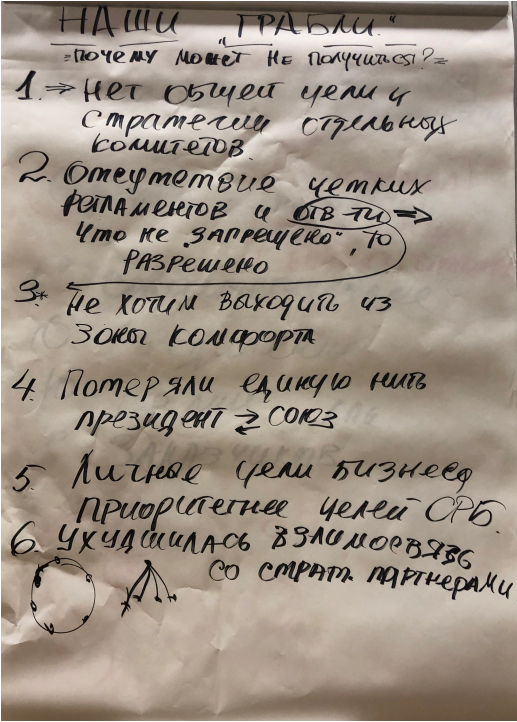 НАШИ "ГРАБЛИ."
=ПОЧЕМУ МОЖЕТ НЕ ПОЛУЧИТЬСЯ?=
1. => Нет общей цели и
стратегии отдельных
комитетов.
2. Отсутствие четких
регламентов и отв-ти =>
Что не "ЗАПРЕЩЕНО", ТО
РАЗРЕШЕНО
3* Не хотим выходить из
Зоны комфорта
4. Потеряли единую нить
президент ⇄ союз
5. Личные цели бизнеса
приоритетнее целей СРБ.
6. Ухудшилась взаимосвязь
со страт. партнерами